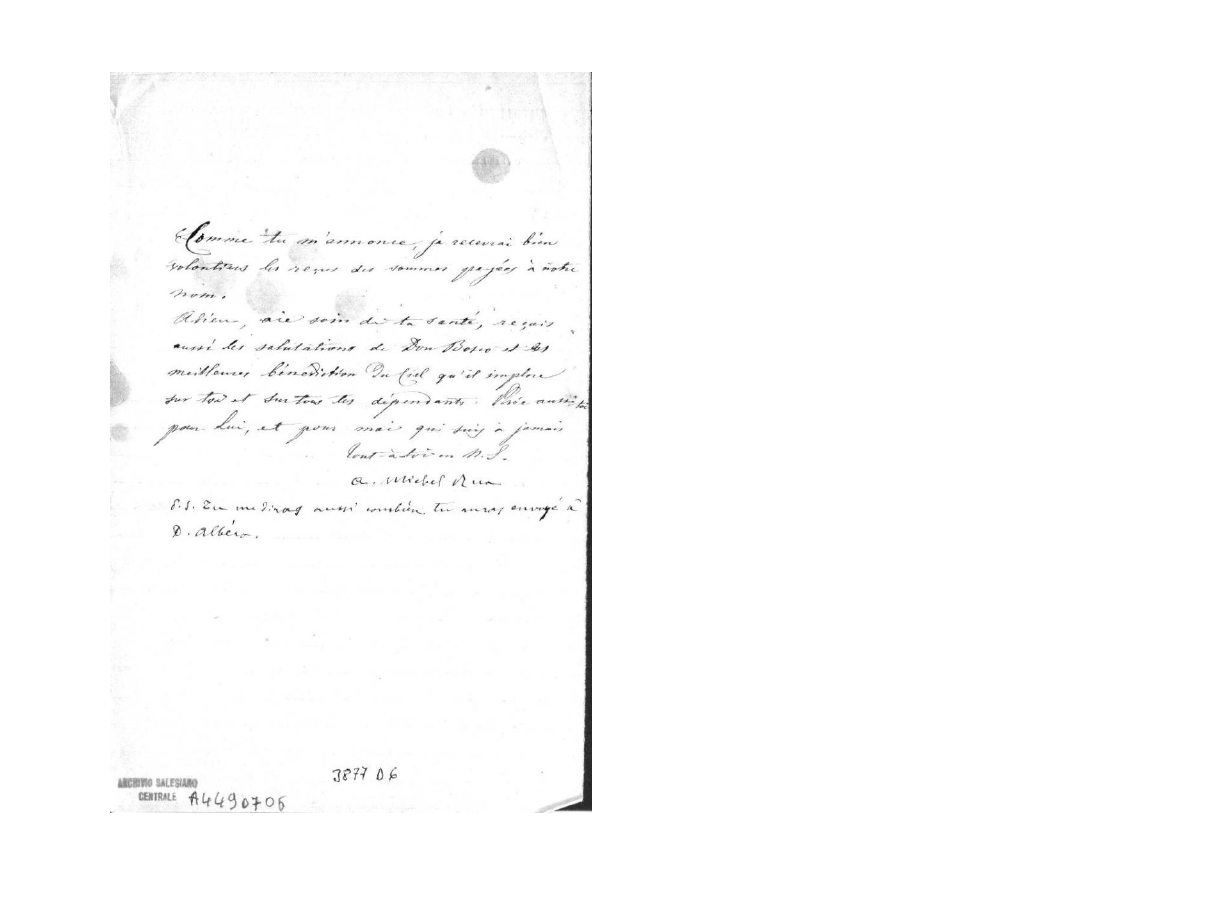 Comme tu m'annonce, je recevrai bien
volontiers les reçus des sommes payées à notre
nom.
Adieu, aie soin de ta santé, reçois
aussi les salutations de Don Bosco et les
meilleures bénediction du Ciel qu'il implore
sur toi et sur tous tes dépendants. Prie aussi toi
pour Lui, et pour moi qui suis à jamais
Tout-à-toi en N. S.
a. Michel Rua
P.S. Tu me diras aussi combien tu auras envoyé à
D. Albéra.
3877 D6
ARCHIVIO SALESIANO
CENTRALE A4490706